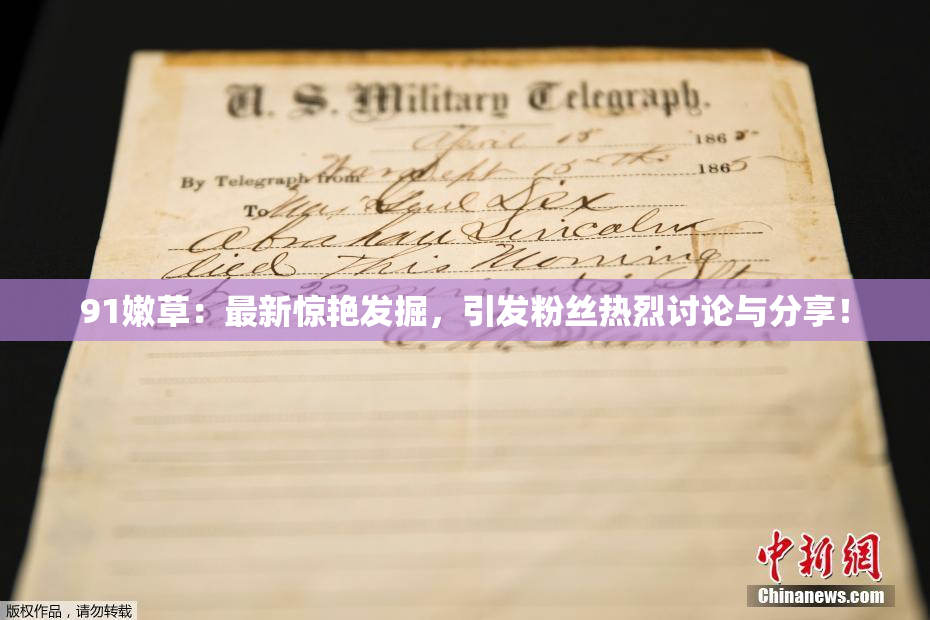 U. S. Military Telegraph.
April 15 1865
By Telegraph from War Dept 15th 1865
To Maj Genl Dix
Abraham Lincoln
died This Morning
at 22 minutes after
91嫩草：最新惊艳发掘，引发粉丝热烈讨论与分享！
E. M. Stanton
中新网
Chinanews.com
版权作品，请勿转载